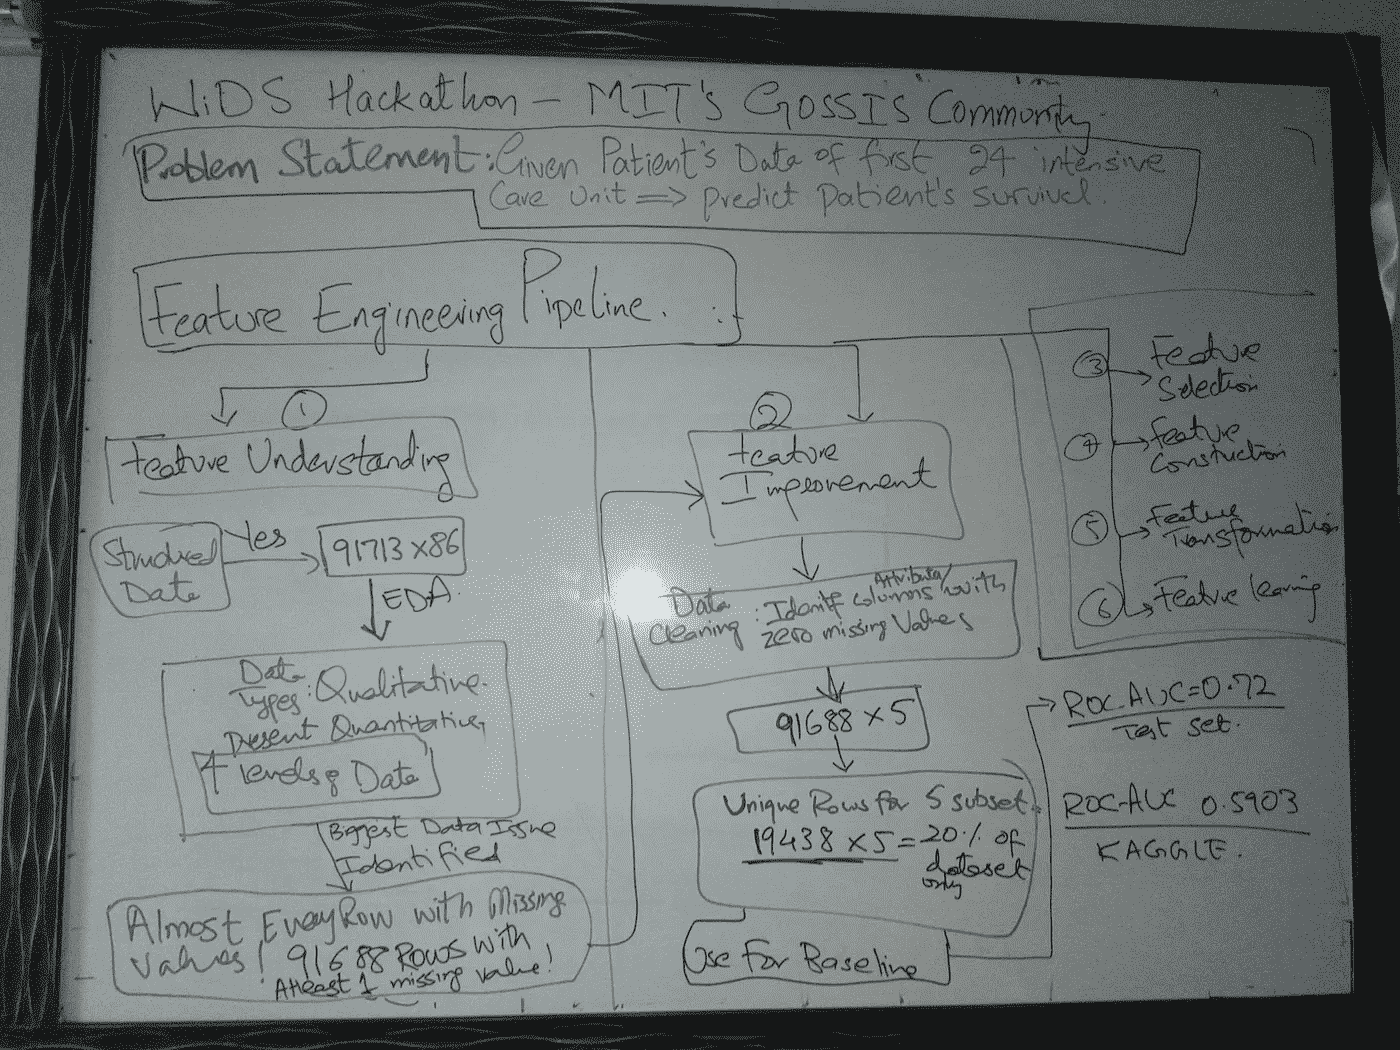 WiDS Hackathon - MIT's GOSSIS Community.
Problem Statement: Given Patient's Data of first 24 intensive
Care Unit => predict patient's survival.
Feature Engineering Pipeline.
1
Feature Understanding
Structured
Data
Yes
91713 x 86
EDA
Data
Types: Qualitative
Present Quantitative,
4 levels of Data
Biggest Data Issue
Identified
Almost Every Row with Missing
Values! 91688 Rows with
Atleast 1 missing value!
2
Feature
Improvement
Data
Cleaning: Identify Attributes/ columns with
zero missing Values
91688 x 5
Unique Rows for 5 subset.
19438 x 5 = 20% of
dataset
only
Use For Baseline
3
Feature
Selection
4
Feature
Constuction
5
Feature
Transformation
6
Feature learing
ROC AUC=0.72
Test set.
ROC-AUC 0.5903
KAGGLE.